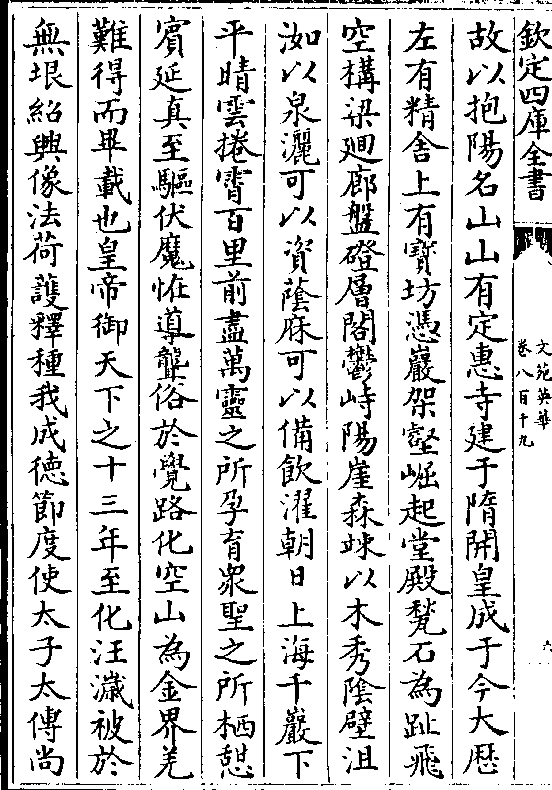 欽定四庫全書
文苑英華
卷八百十九
六
故以抱陽名山山有定惠寺建于隋開皇成于今大厯
左有精舍上有寳坊憑巖架壑崛起堂殿甃石為趾飛
空構梁廻廊盤磴層閣鬱峙陽崖森竦以木秀陰壁沮
洳以泉灑可以資蔭庥可以備飲濯朝日上海千巖下
平晴雲捲霄百里前盡萬靈之所孕育衆聖之所栖憇
賓延真至驅伏魔恠導聾俗於覺路化空山為金界羌
難得而畢載也皇帝御天下之十三年至化汪濊被於
無垠紹興像法荷護釋種我成徳節度使太子太傅尚